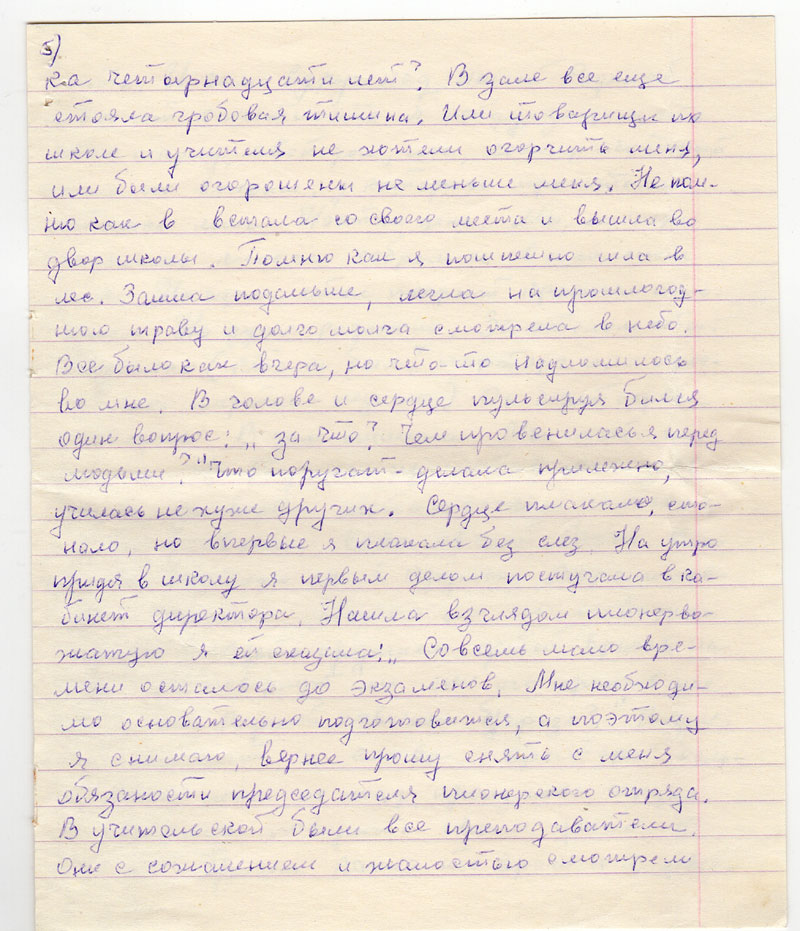 5)
ка четырнадцати лет? В зале все еще
стояла гробовая тишина. Или товарищи по
школе и учителя не хотели огорчить меня,
или были огорошены не меньше меня. Не пом-
ню как в встала со своего места и вышла во
двор школы. Помню как я поспешно шла в
лес. Зашла подальше, легла на прошлогод-
нюю траву и долго молча смотрела в небо.
Все было как вчера, но что-то надломилось
во мне. В голове и сердце пульсируя бился
один вопрос: „за что? Чем провенилась я перед
людьми?" Что поручат - делала прилежно,
училась не хуже других. Сердце плакало, сто-
нало, но впервые я плакала без слез. На утро
придя в школу я первым делом постучала в ка-
бинет директора. Нашла взглядом пионерво-
жатую я ей сказала: „Совсемь мало вре-
мени осталось до экзаменов. Мне необходи-
мо основательно подготовится, а поэтому
я снимаю, вернее прошу снять с меня
обязаности председателя пионерского отряда.
В учительской были все преподаватели.
Они с сожалением и жалостью смотрели